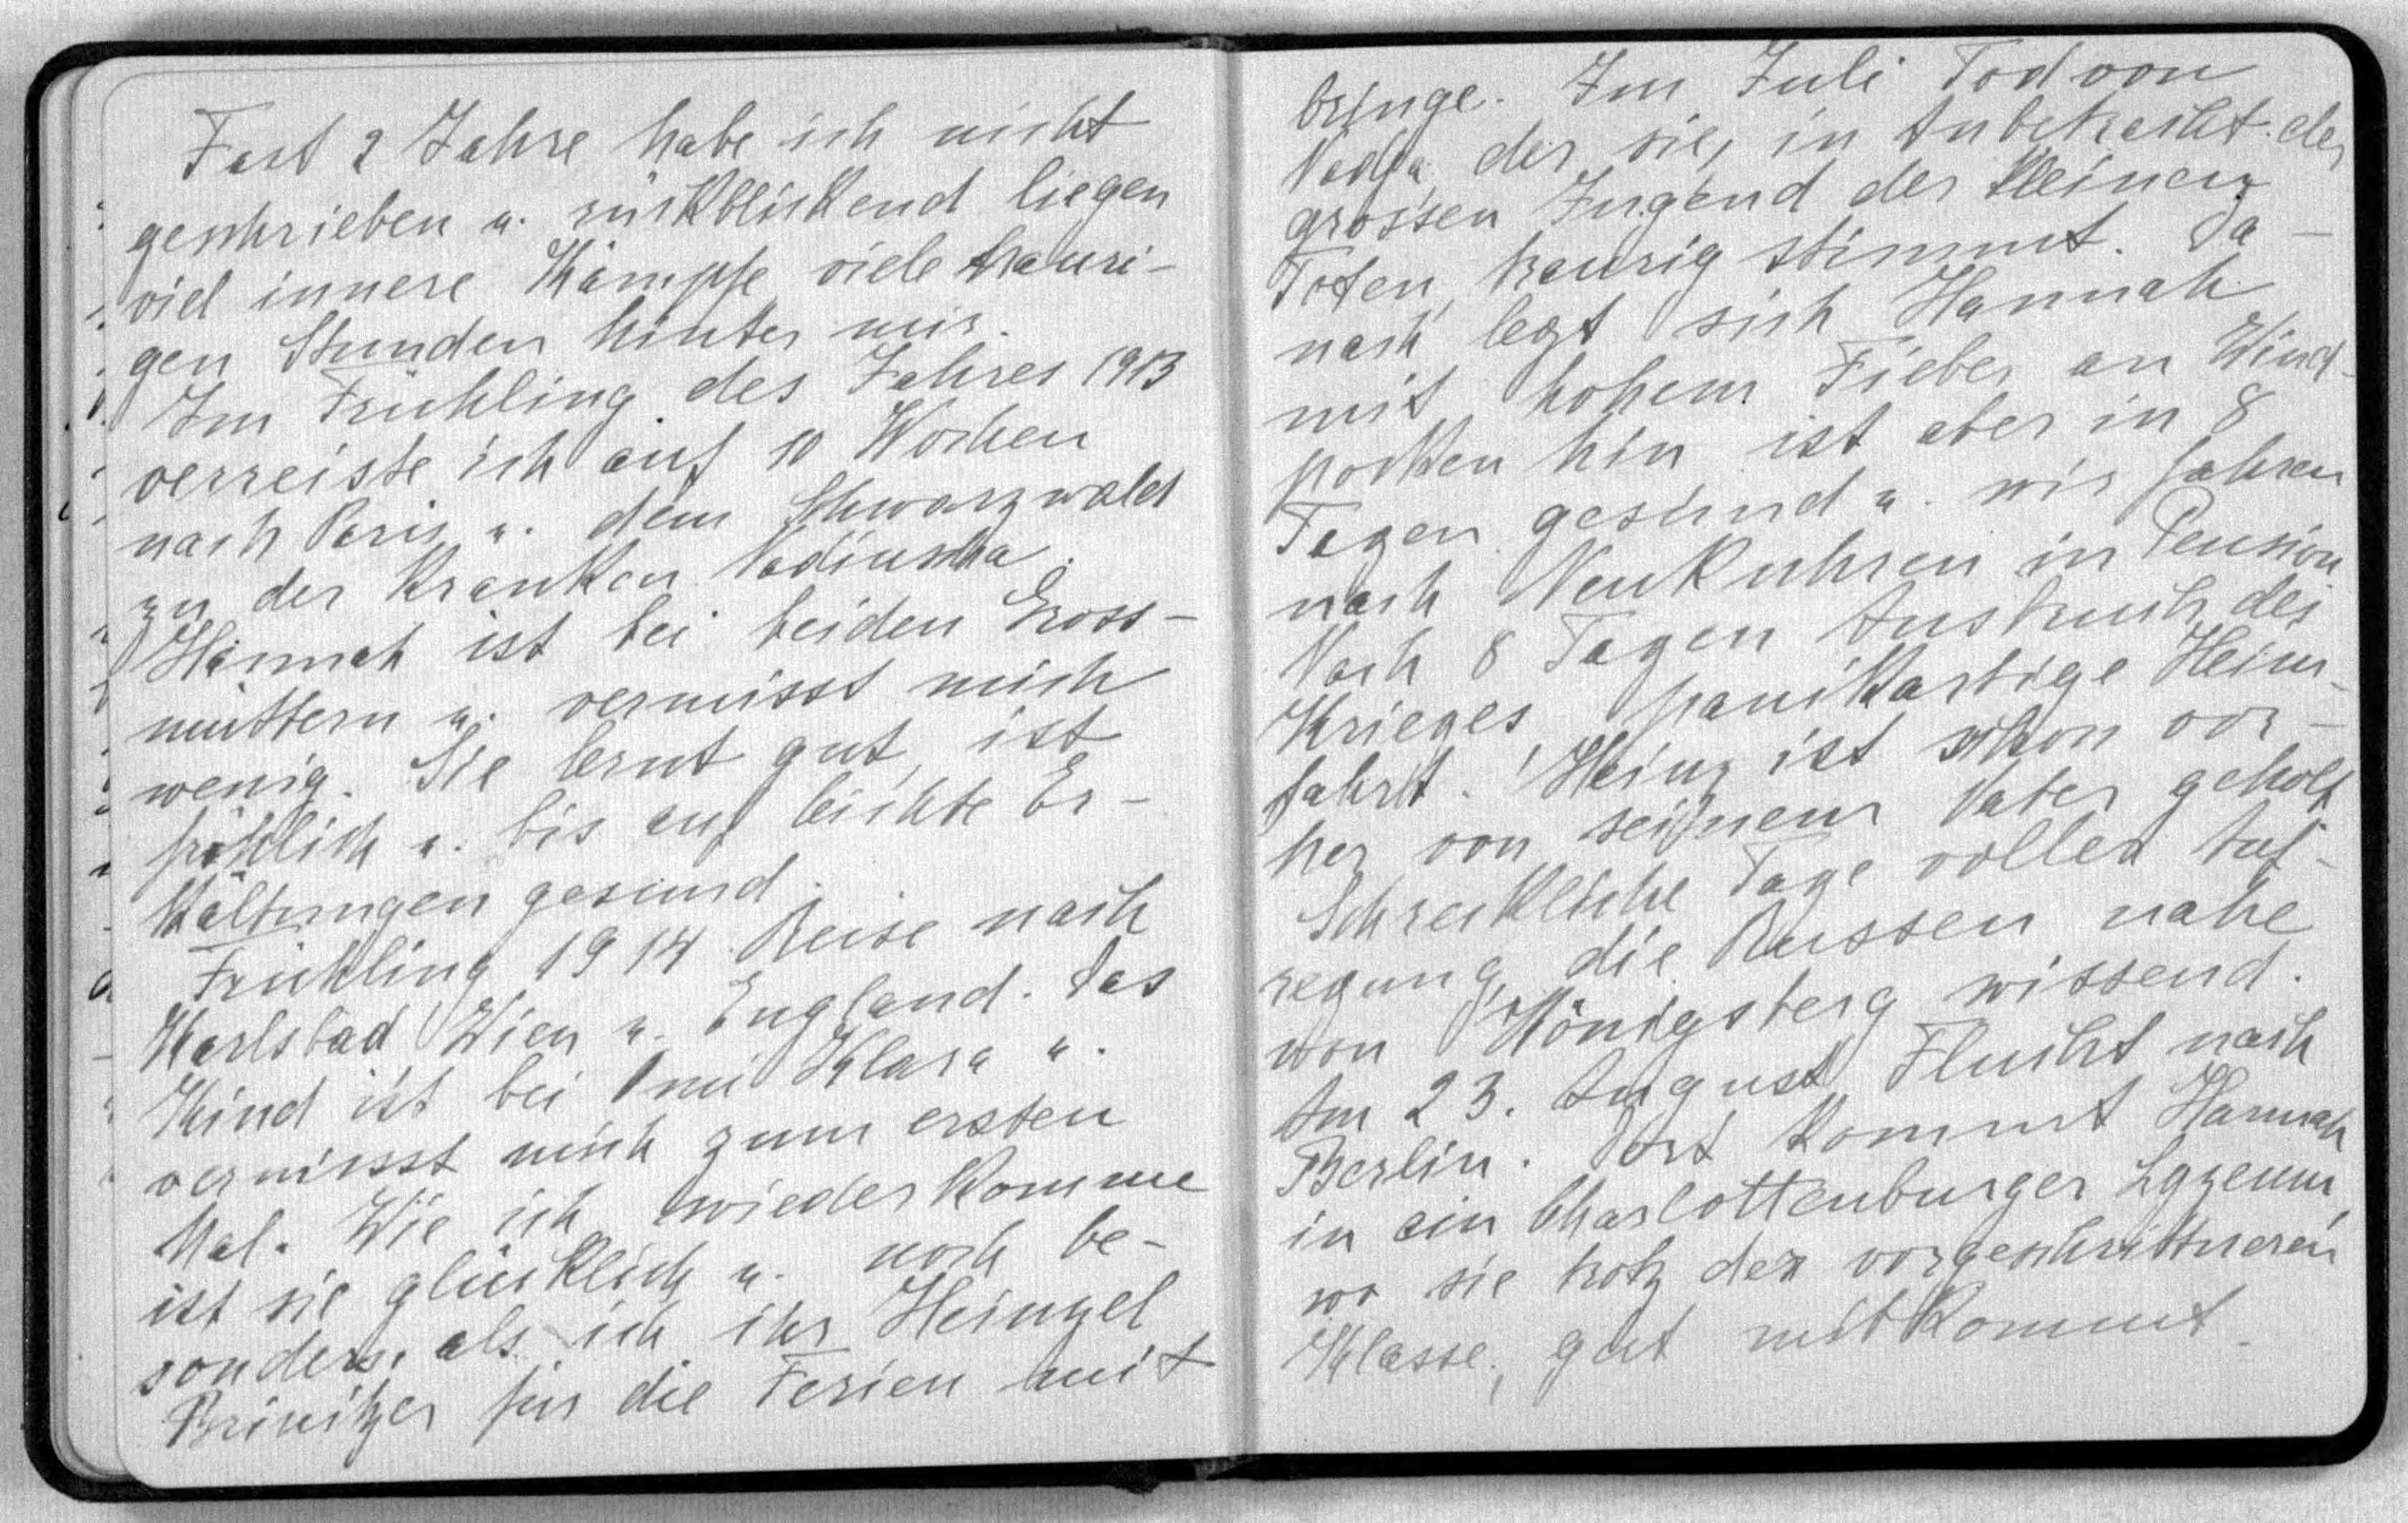 Fast 2 Jahre habe ich nicht
geschrieben u. rückblickend liegen
viel innere Kämpfe viele trauri-
gen Stunden hinter mir.
Im Frühling des Jahres 1913
verreiste ich auf 10 Wochen
nach Paris u. dem Schwarzwald
zu der kranken Nadiuscha.
Hannah ist bei beiden Gross-
müttern u. vermisst mich
wenig. Sie lernt gut, ist
fröhlich u. bis auf leichte Er-
kältungen gesund.
Frühling 1914 Reise nach
Karlsbad Wien u. England. Das
Kind ist bei Omi Klara u.
vermisst mich zum ersten
Mal. Wie ich wiederkomme
ist sie glücklich u. noch be-
sonders, als ich ihr Heinzel
Brinitzer für die Ferien mit
bringe. Im Juli Tod von
Nadja, der sie, in Anbetracht der
grossen Jugend der kleinen
Toten, traurig stimmt. Da-
nach legt sich Hannah
mit hohem Fieber an Wind-
pocken hin ist aber in 8
Tagen gesund u. wir fahren
nach Neukuhren in Pension
Nach 8 Tagen Ausbruch des
Krieges, panikartige Heim-
fahrt. Heinz ist schon vor-
her von seinem Vater geholt
Schreckliche Tage voller Auf-
regung, die Russen nahe
von Königsberg wissend.
Am 23. August Flucht nach
Berlin. Dort kommt Hannah
in ein Charlottenburger Lyzeum,
wo sie trotz der vorgeschrittneren
Klasse, gut mitkommt.